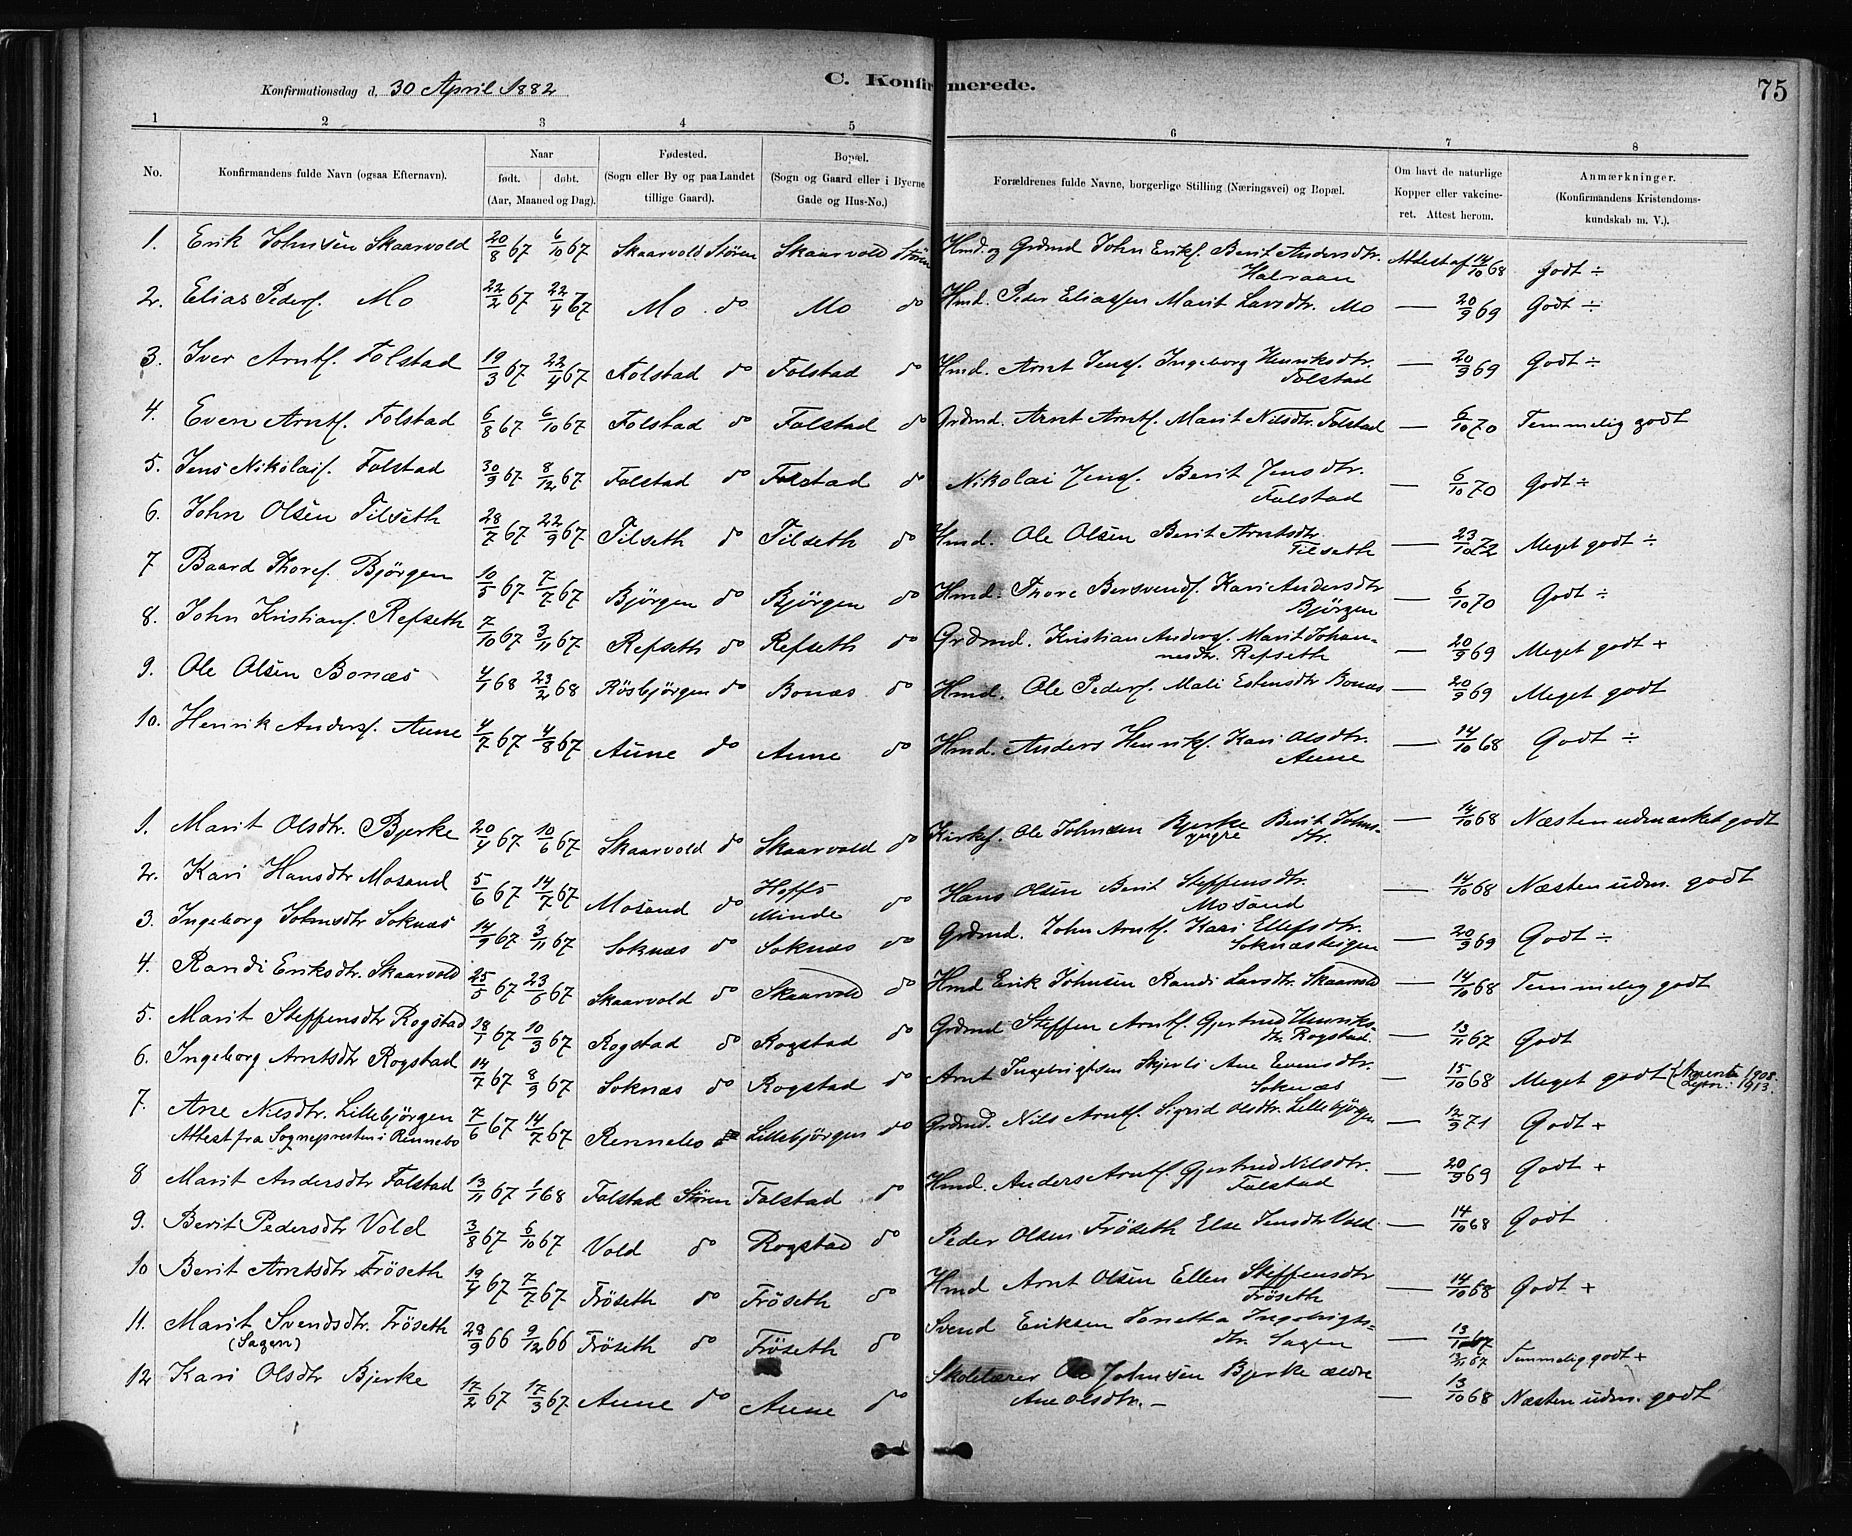 Konfirmationsdag d. 30 April 1882
C. Konfirmerede.
75
1 2 3 4 5 6 7 8
No. Konfirmandens fulde Navn (ogsaa Efternavn). Naar født. døbt. (Aar, Maaned og Dag). Fødested. (Sogn eller By og paa Landet tillige Gaard). Bopæl. (Sogn og Gaard eller i Byerne Gade og Hus-No.) Forældrenes fulde Navne, borgerlige Stilling (Næringsvei) og Bopæl. Om havt de naturlige Kopper eller vakcineret. Attest herom. Anmærkninger. (Konfirmandens Kristendomskundskab m. V.).
1. Erik Johnsen Skaarvold 20/8 67 6/10 67 Skaarvold Støren Skaarvold Støren Hmd. og Grdmd John Eriks. Berit Andersdtr. Halvaan Attest af 14/10 68 Godt ÷
2. Elias Peders. Mo 22/2 67 22/4 67 Mo do Mo do Hmd. Peder Eliassen Marit Larsdtr. Mo — 20/9 69 Godt ÷
3. Iver Arnts. Folstad 19/3 67 22/4 67 Folstad do Folstad do Hmd. Arnt Jens. Ingeborg Henriksdtr. Folstad — 20/9 69 Godt ÷
4. Even Arnts. Folstad 6/8 67 6/10 67 Folstad do Folstad do Grdmd. Arnt Arnts. Marit Nilsdtr. Folstad — 6/10 70 Temmelig godt
5. Jens Nikolais. Folstad 30/9 67 8/12 67 Folstad do Folstad do Nikolai Jens. Berit Jensdtr. Folstad — 6/10 70 Godt ÷
6. John Olsen Tilseth 28/7 67 22/9 67 Tilseth do Tilseth do Hmd. Ole Olsen Berit Arntsdtr. Tilseth — 23/10 72 Meget godt ÷
7 Baard Thores. Bjørgen 10/5 67 7/7 67 Bjørgen do Bjørgen do Hmd. Thore Bersvends. Kari Andersdtr Bjørgen — 6/10 70 Godt ÷
8. John Kristians. Refseth 7/10 67 3/11 67 Refseth do Refseth do Grdmd. Kristian Anders. Marit Johannesdtr. Refseth — 20/9 69 Meget godt +
9. Ole Olsen Bonæs 4/1 68 23/2 68 Røsbjørgen do Bonæs do Hmd. Ole Peders. Mali Estensdtr Bonæs — 20/9 69 Meget godt
10. Henrik Anders. Aune 4/7 67 4/8 67 Aune do Aune do Hmd. Anders Henriks. Kari Olsdtr. Aune — 14/10 68 Godt ÷
1. Marit Olsdtr. Bjerke 20/4 67 10/6 67 Skaarvold do Skaarvold do Kirkes. Ole Johnsen Bjerke yngre Berit Johnsdtr. — 14/10 68 Næsten udmærket godt
2. Kari Hansdtr Mosand 5/6 67 14/7 67 Mosand do Hoffs Minde do Hans Olsen Berit Steffensdtr. Mosand — 14/10 68 Næsten udm. godt
3. Ingeborg Johnsdtr Soknæs 14/9 67 3/11 67 Soknæs do Soknæs do Grdmd. John Arnts. Kari Ellefsdtr. Soknæsteigen — 20/9 69 Godt ÷
4. Randi Eriksdtr. Skaarvold 25/5 67 23/6 67 Skaarvold do Skaarvold do Hmd Erik Johnsen Randi Larsdtr. Skaarvold — 14/10 68 Temmelig godt
5. Marit Steffensdtr Rogstad 18/1 67 10/3 67 Rogstad do Rogstad do Grdmd Steffen Arnts. Gjertrud Henriksdtr. Rogstad — 13/11 67 Godt
6. Ingeborg Arntsdtr Rogstad 14/7 67 8/9 67 Soknæs do Rogstad do Arnt Ingebrigtsen Skjerli Ane Evensdtr. Soknæs — 15/10 68 Meget godt 1908. 1913.
7. Ane Nilsdtr. Lillebjørgen 7/6 67 14/7 67 Rennebo Lillebjørgen do Grdmd. Nils Arnts. Sigrid Olsdtr. Lillebjørgen — 12/9 71 Godt +
Attest fra Sognepresten i Rennebo
8 Marit Andersdtr Folstad 13/11 67 1/1 68 Folstad Støren Folstad do Hmd. Anders Arnts. Gjertrud Nilsdtr. Folstad — 20/9 69 Godt +
9. Berit Pedersdtr Vold 3/8 67 6/10 67 Vold do Rogstad do Peder Olsen Frøseth Else Jensdtr Vold — 14/10 68 Godt
10 Berit Arntsdtr Frøseth 19/4 67 7/7 67 Frøseth do Frøseth do Hmd Arnt Olsen Ellen Steffensdtr Frøseth — 14/10 68 Godt +
11. Marit Svendsdtr. Frøseth (Sagen) 28/9 66 9/12 66 Frøseth do Frøseth do Svend Eriksen Jonetta Ingebrigtsdtr. Sagen — 13/11 67 13/11 67 Temmelig godt +
12 Kari Olsdtr Bjerke 17/2 67 17/3 67 Aune do Aune do Skolelærer Ole Johnsen Bjerke ældre Ane Olsdtr. — — 13/10 68 Næsten udm. godt